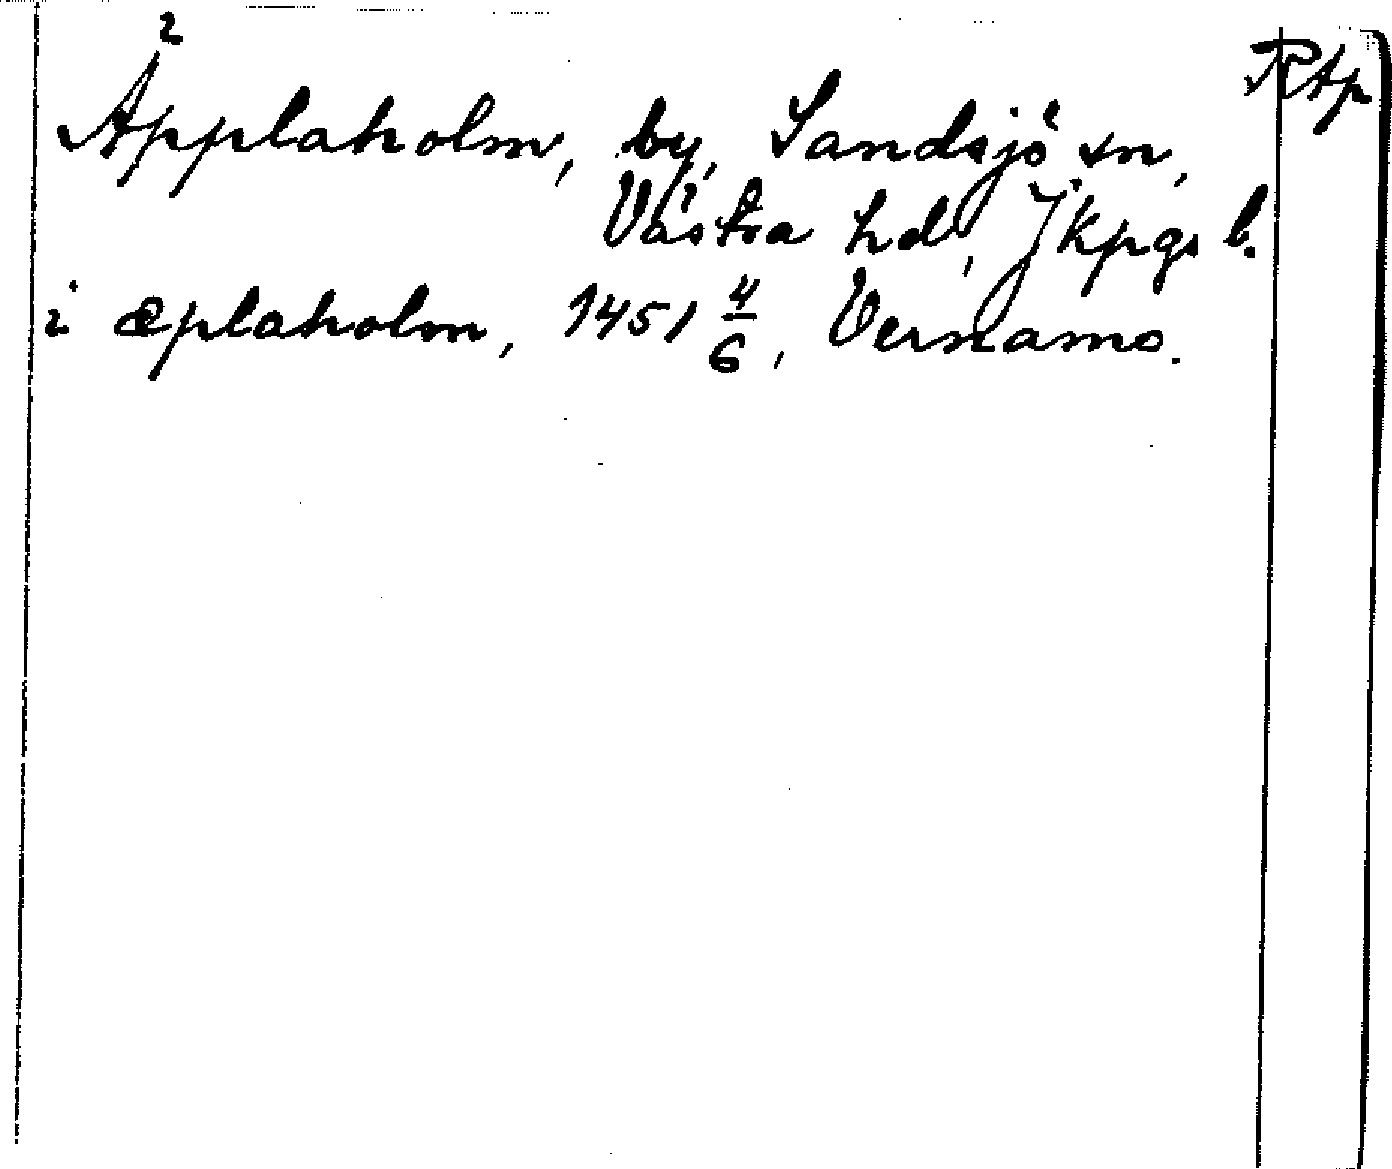 RAp
Äpplaholm, by, Sandsjö sn,
Västra hd, Jkpgs l.
i æplaholm, 1451 4/6, Vernamo.